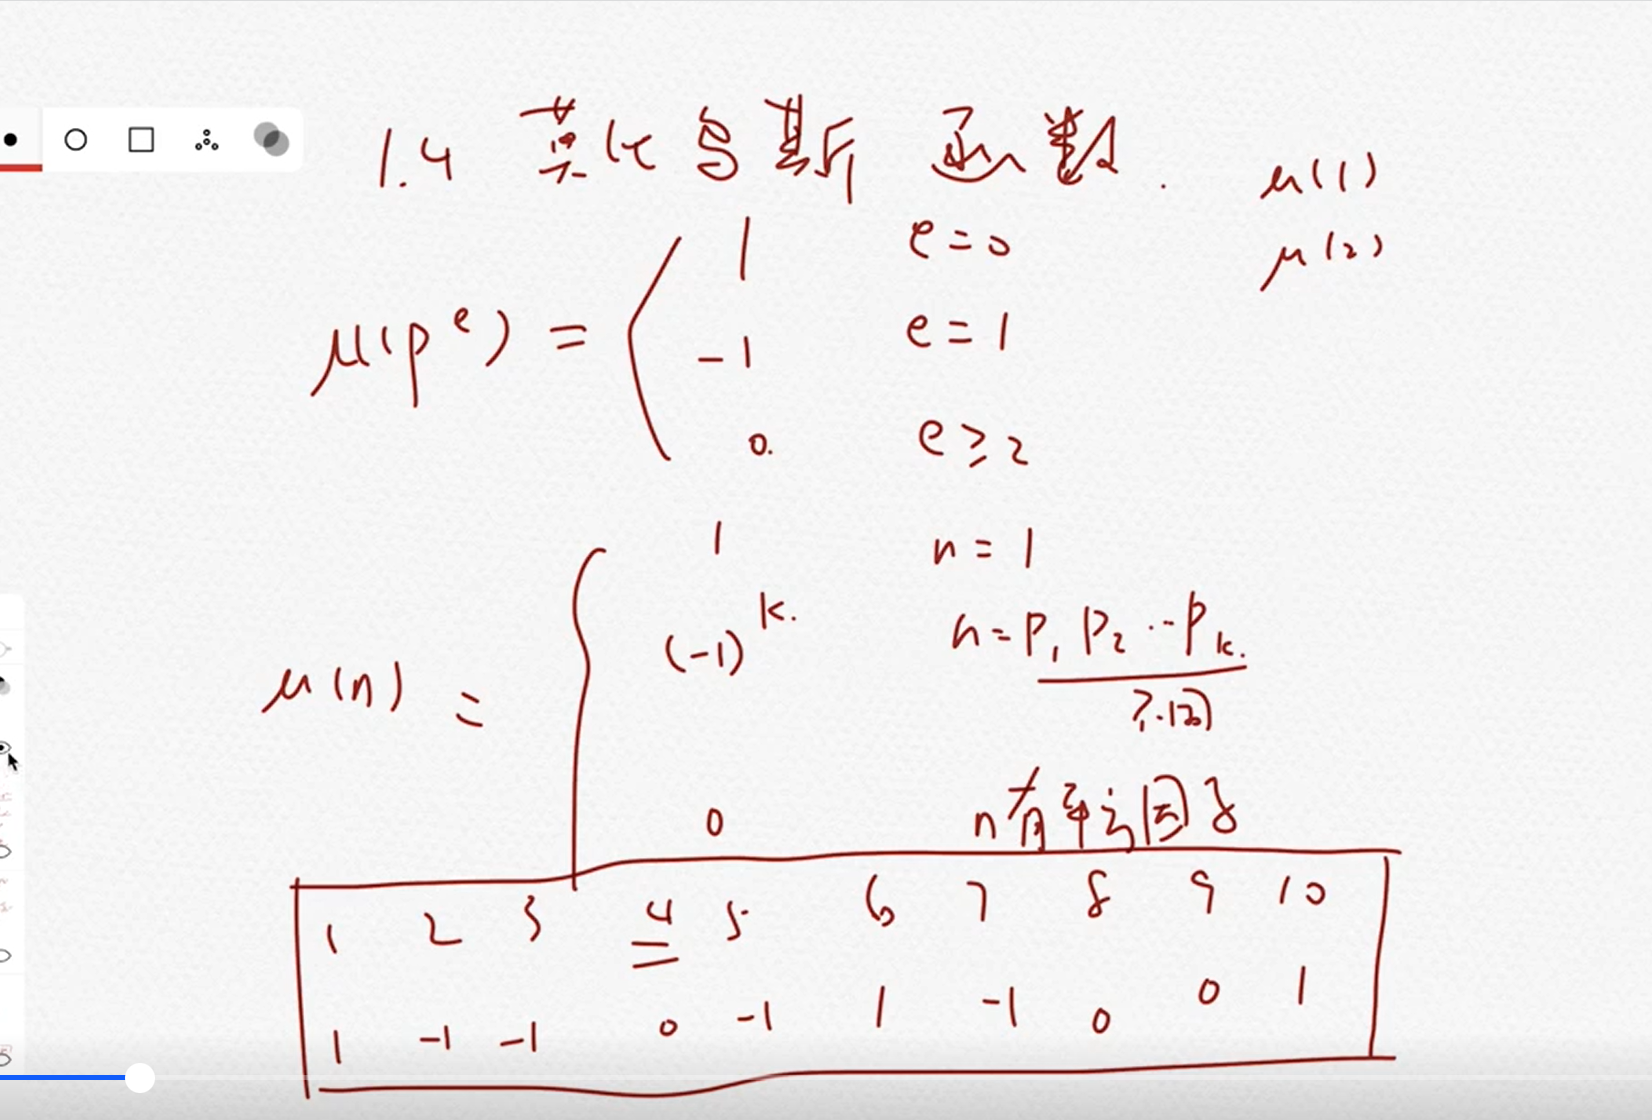 1.4 莫比乌斯函数.
μ(1)
μ(2)
μ(p^e) = { 1 e=0
-1 e=1
0. e≥2
μ(n) = { 1 n=1
(-1)^k. n=p₁p₂…pₖ.
不同
0 n有平方因子
1 2 3 4 5 6 7 8 9 10
1 -1 -1 0 -1 1 -1 0 0 1